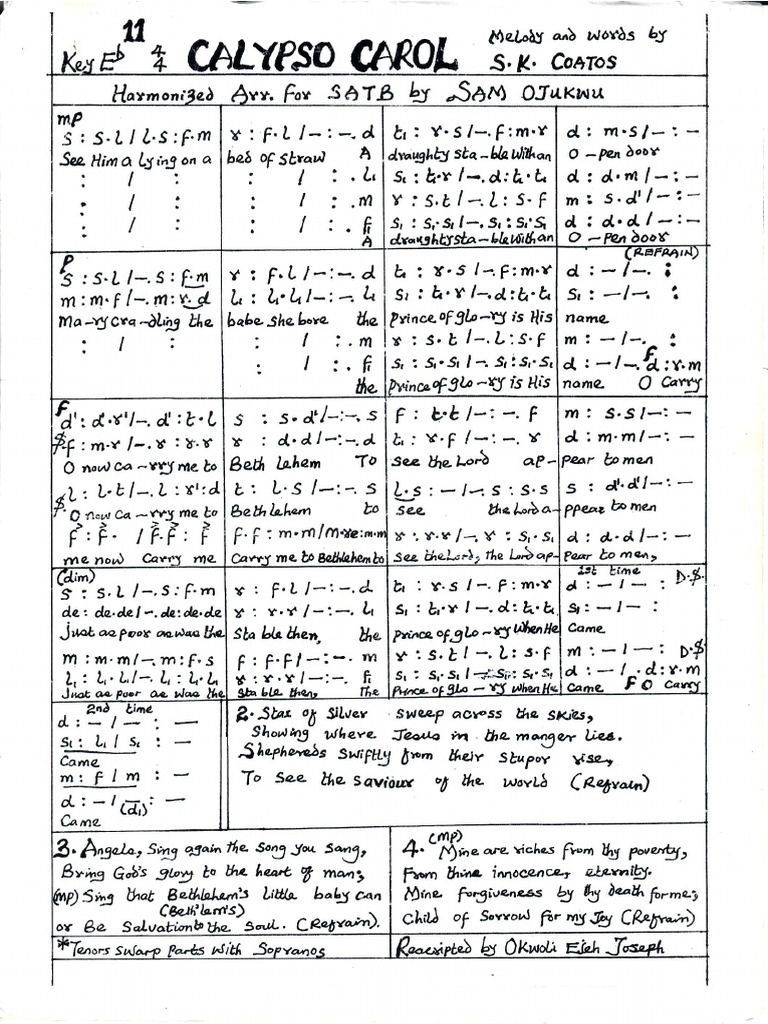 11
Key E♭ 4/4 CALYPSO CAROL Melody and words by
S. K. COATOS
Harmonized Arr. for SATB by SAM OJUKWU
mp
s : s.l / l.s : f.m | r : f.l / – : –. d | t₁ : r.s / –. f : m.r | d : m.s / – : –
See Him a lying on a | bed of straw A | draughty sta–ble with an | O – pen door
: / : | : / : . l₁ | s₁ : t₁.r / –. d : t₁.t₁ | d : d.m / – : –
: / : | : / : . m | r : s.t / –. l : s.f | m : s.d' / – : –
: / : | : / : . f₁ | s₁ : s₁.s₁ / –. s₁ : s₁.s₁ | d : d.d / – : –
A | draughty sta–ble with an | O – pen door
p (REFRAIN)
s : s.l / –. s : f.m | r : f.l / – : –. d | t₁ : r.s / –. f : m.r | d : – / –. :
m : m.f / –. m : r.d | l₁ : l₁.l₁ / – : –. l₁ | s₁ : t₁.r / –. d : t₁.t₁ | s₁ : – / –. :
Ma–ry cra–dling the | babe she bore the | prince of glo–ry is His | name
: / : | : / : . m | r : s.t / –. l : s.f | m : – / –. :
: / : . f₁ | s₁ : s₁.s₁ / –. s₁ : s₁.s₁ | d : – / –. f d : r.m
the | prince of glo–ry is His | name O Carry
f
d' : d'.r' / –. d' : t.l | s : s.d' / – : –. s | f : t.t / – : –. f | m : s.s / – : –
𝄋 f : m.r / –. r : r.r | r : d.d / – : –. d | t₁ : r.f / – : –. r | d : m.m / – : –
O now ca–rry me to | Beth lehem To | see the Lord ap– | pear to men
l : l.t / –. l : r' : d | t : l.s / – : –. s | l.s : – / – : s : s.s | s : d'.d' / – : –
𝄋 O now ca–rry me to | Bethlehem to | see the Lord a– | ppear to men
f : f. / f. f : f | f.f : m.m / m.re : m.m | r : r.r / –. r : s₁.s₁ | d : d.d / – : –
me now Carry me | Carry me to Bethlehem to | see the Lord, the Lord ap– | pear to men,
(dim) 1st time
s : s.l / –. s : f.m | r : f.l / – : –. d | t₁ : r.s / –. f : m.r | d : – / – : D.𝄋
de : de.de / –. de : de.de | r : r.r / – : –. l₁ | s₁ : t₁.r / –. d : t₁.t₁ | s₁ : – / – :
Just as poor as was the | sta ble then, the | prince of glo–ry when He | Came
m : m.m / –. m : f.s | f : f.f / – : –. m | r : s.t / –. l : s.f | m : – / – : D.𝄋
l₁ : l₁.l₁ / –. l₁ : l₁.l₁ | r : r.r / – : –. f₁ | s₁ : s₁.s₁ / –. s₁ : s₁.s₁ | d : – / –. d : r.m
Just as poor as was the | sta ble then, The | Prince of glo–ry when He | came f O Carry
2nd time
d : – / – : –
s₁ : l₁ / s₁ : –
Came
m : f / m : –
d : – / – : –
(d₁)
Came
2. Star of Silver sweep across the skies,
Showing where Jesus in the manger lies.
Shephereds swiftly from their stupor rise,
To see the saviour of the world (Refrain)
3. Angels, Sing again the song you sang,
Bring God's glory to the heart of man;
(mp) Sing that Bethlehem's little baby can
(Beth'lem's)
or Be Salvation to the soul. (Refrain).
*Tenors swarp parts with Sopranos
(mp)
4. Mine are riches from thy poverty,
From thine innocence, eternity.
Mine forgiveness by thy death for me;
Child of Sorrow for my Joy (Refrain)
Reascripted by Okwoli Ejeh Joseph